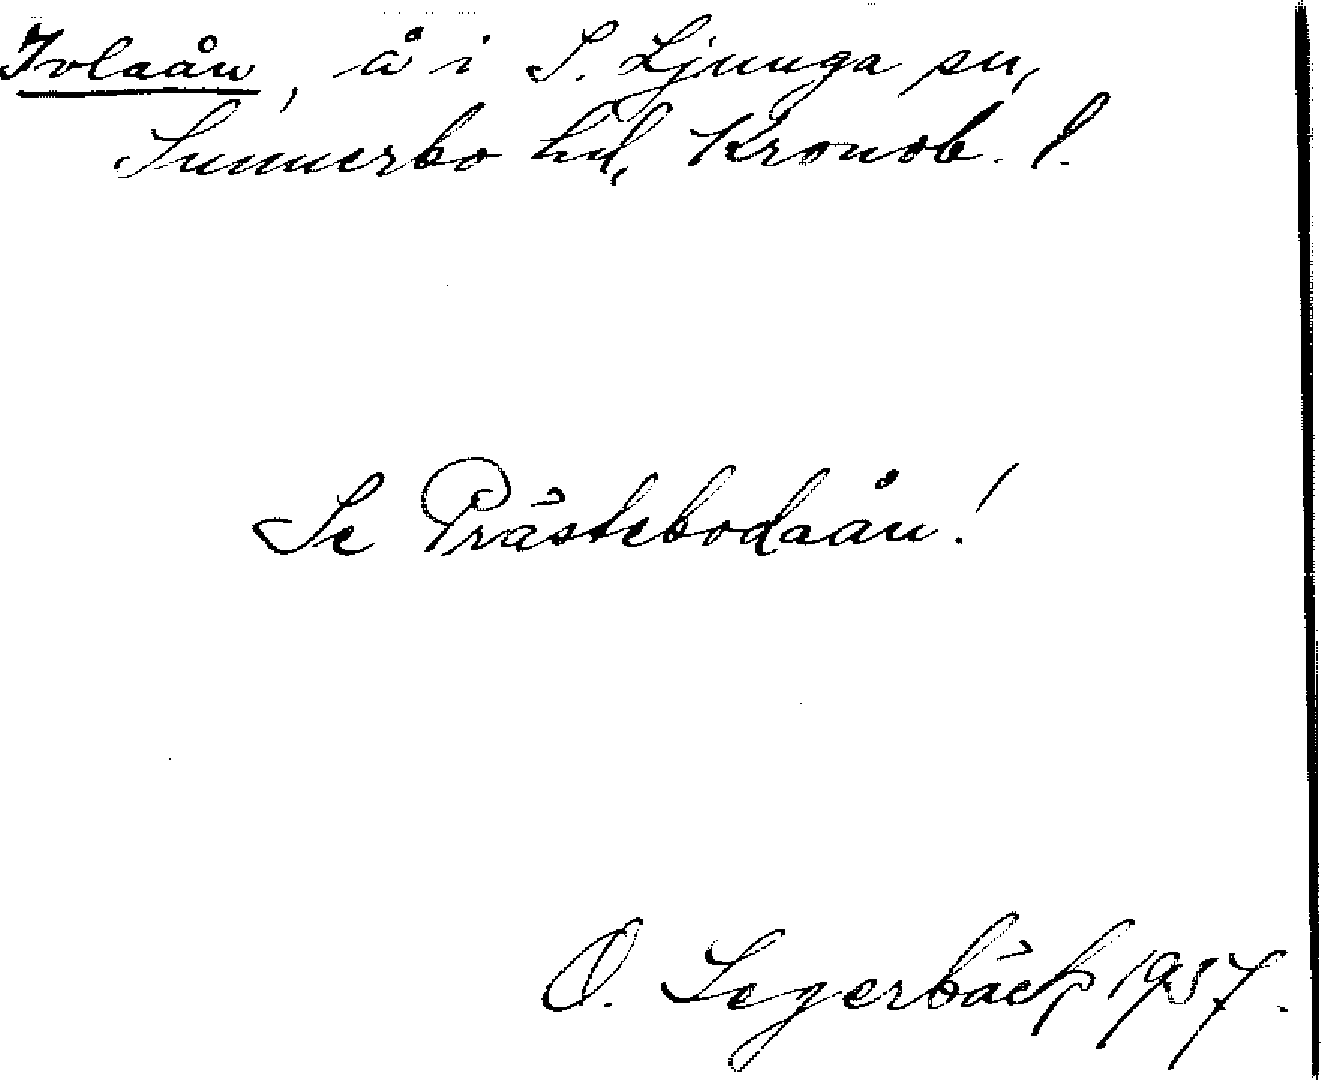 Ivlaån, å i S. Ljunga sn,
Sunnerbo hd, Kronob. l.
Se Prästebodaån!
O. Segerbäck 1957.